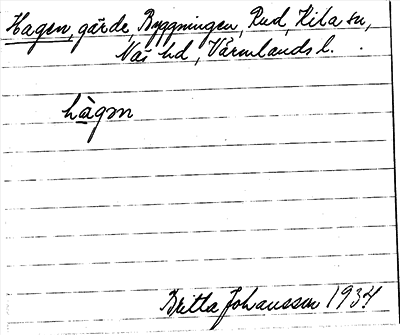 Hagen, gärde, Byggningen, Rud, Kila sn,
Näs hd, Värmlands l.
hàgm
Britta Johansson 1934